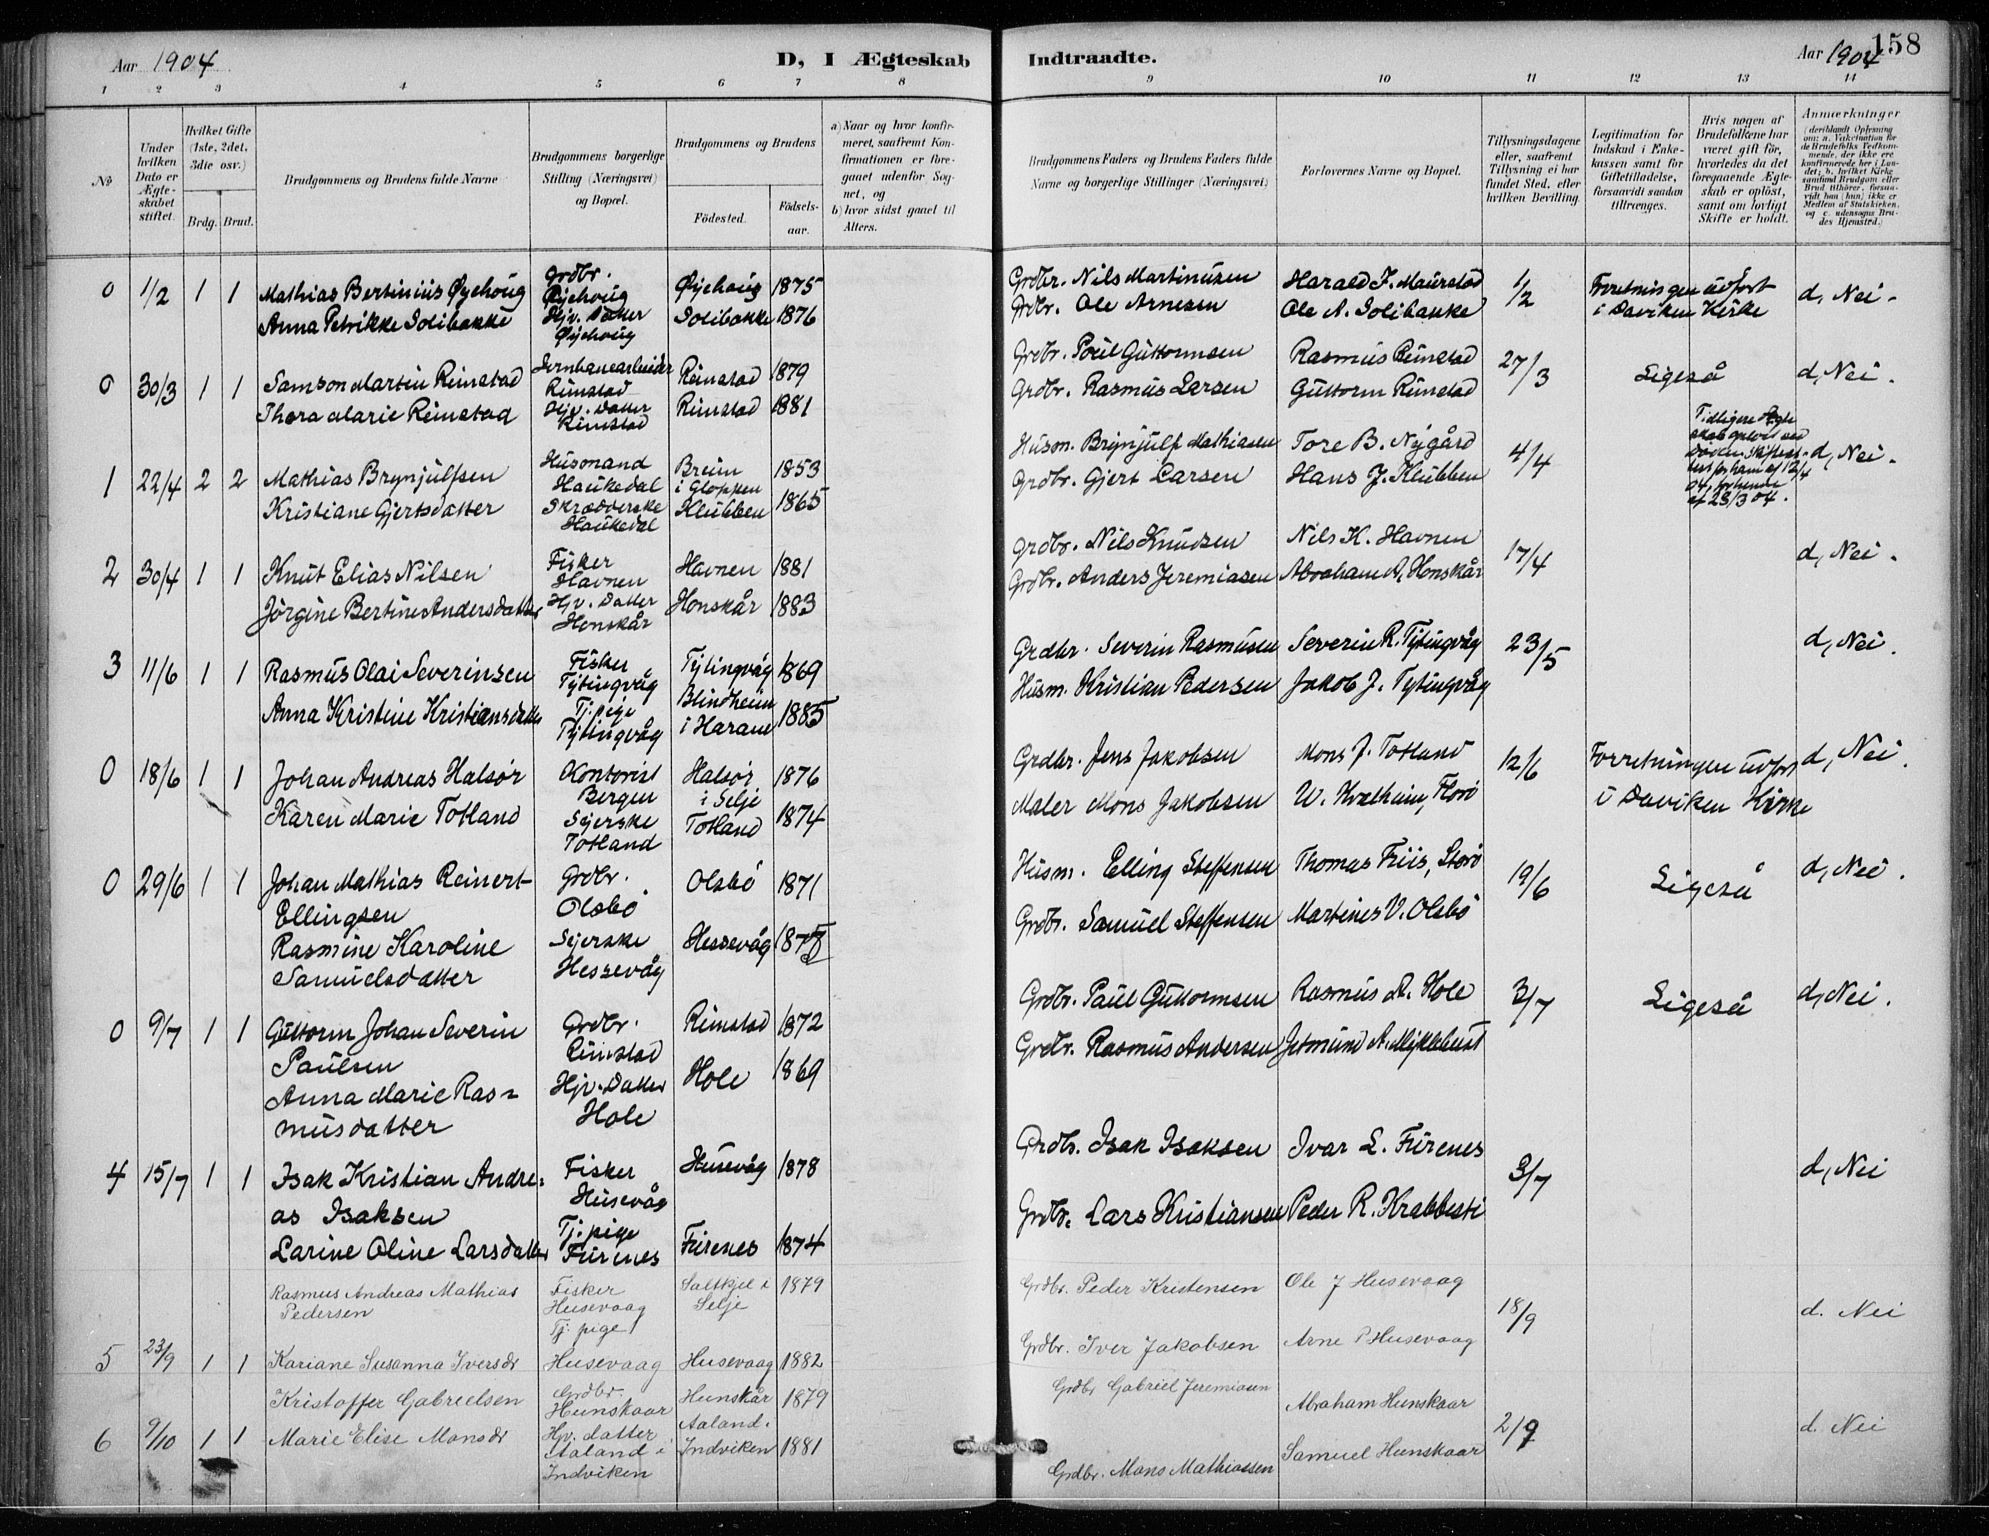 Aar 1904
D, I Ægteskab Indtraadte.
Aar 1904
158
1 2 3 4 5 6 7 8 9 10 11 12 13 14
No
Under hvilken Dato er Ægteskabet stiftet.
Hvilket Gifte (1ste, 2det, 3die osv.)
Brdg. Brud.
Brudgommens og Brudens fulde Navne
Brudgommens borgerlige Stilling (Næringsvei) og Bopæl.
Brudgommens og Brudens
Födested.
Födselsaar.
a) Naar og hvor konfirmeret, saafremt Konfirmationen er foregaaet udenfor Sognet, og
b) hvor sidst gaaet til Alters.
Brudgommens Faders og Brudens Faders fulde Navne og borgerlige Stillinger (Næringsvei)
Forlovernes Navne og Bopæl.
Tillysningsdagene eller, saafremt Tillysning ei har fundet Sted, efter hvilken Bevilling.
Legitimation for Indskud i Enkekassen samt for Giftetilladelse, forsaavidt saadan tiltrænges.
Hvis nogen af Brudefolkene har været gift för, hvorledes da det foregaaende Ægteskab er oplöst, samt om lovligt Skifte er holdt.
Anmærkninger
(deriblandt Oplysning om: a. Vakcination for de Brudefolks Vedkommende, der ikke ere konfirmerede her i Landet; b. hvilket Kirkesamfund Brudgom eller Brud tilhörer, forsaavidt han (hun) ikke er Medlem af Statskirken, og c. udensogns Brudes Hjemsted.)
0 1/2 1 1 Mathias Bertinius Øyehoug Grdbr. Øyehoug Øyehoug 1875 Grdbr. Nils Martinusen Harald J. Maurstad 1/2 Forretningen udfört i Daviken Kirke d, Nei.
Anna Petrikke Solibakke Hjv. Datter Øyehoug Solibakke 1876 Grdbr. Ole Arnesen Ole A. Solibakke
0 30/3 1 1 Samson Martin Rimstad Jernbanearbeider Rimstad Rimstad 1879 Grdbr. Poul Guttormsen Rasmus Rimstad 27/3 Ligeså d, Nei.
Thora Marie Rimstad Hjv. Datter Rimstad Rimstad 1881 Grdbr. Rasmus Larsen Guttorm Rimstad
1 22/4 2 2 Mathias Brynjulfsen Husmand Haukedal Breim i Gloppen 1853 Husm. Brynjulf Mathiasen Tore B. Nygård 4/4 d, Nei.
Tidligere Ægteskab oplöst ved Döden. Skifteattest for ham af 12/4 04, for hende af 28/3 04.
Kristiane Gjertsdatter Skrædderske Haukedal Klubben 1865 Grdbr. Gjert Larsen Hans J. Klubben
2 30/4 1 1 Knut Elias Nilsen Fisker Havnen Havnen 1881 Grdbr. Nils Knudsen Nils K. Havnen 17/4 d, Nei.
Jörgine Bertine Andersdatter Hjv. Datter Honskår Honskår 1883 Grdbr. Anders Jeremiasen Abraham A. Honskår
3 11/6 1 1 Rasmus Olai Severinsen Fisker Tytingvåg Tytingvåg 1869 Grdbr. Severin Rasmusen Severin R. Tytingvåg 23/5 d, Nei.
Anna Kristine Kristiansdatter Tj. pige Tytingvåg Blindheim i Haram 1885 Husm. Kristian Pedersen Jakob J. Tytingvåg
0 18/6 1 1 Johan Andreas Halsör Kontorist Bergen Halsör i Selje 1876 Grdbr. Jens Jakobsen Mons J. Totland 12/6 Forretningen udfört i Daviken Kirke d, Nei.
Karen Marie Totland Syerske Totland Totland 1874 Maler Mons Jakobsen W. Kvalheim, Florö
0 29/6 1 1 Johan Mathias Reinert Ellingsen Grdbr. Olsbö Olsbö 1871 Husm. Elling Steffensen Thomas Friis, Storö 19/6 Ligeså d, Nei.
Rasmine Karoline Samuelsdatter Syerske Hessevåg Hessevåg Grdbr. Samuel Steffensen Martines V. Olsbö
0 9/7 1 1 Guttorm Johan Severin Paulsen Grdbr. Rimstad Rimstad 1872 Grdbr. Paul Guttormsen Rasmus A. Hole 3/7 Ligeså d, Nei.
Anna Marie Rasmusdatter Hjv. Datter Hole Hole 1869 Grdbr. Rasmus Andersen Jetmund A. Myklebust
4 15/7 1 1 Isak Kristian Andreas Isaksen Fisker Husevåg Husevåg 1878 Grdbr. Isak Isaksen Ivar L. Furenes 3/7 d, Nei
Larine Oline Larsdatter Tj. pige Furenes Furenes 1874 Grdbr. Lars Kristiansen Peder R. Krabbesti
Rasmus Andreas Mathias Pedersen Fisker Husevaag Saltkjel i Selje 1879 Grdbr. Peder Kristensen Ole J Husevaag 18/9 d. Nei
5 23/9 1 1 Kariane Susanna Iversdr Tj. pige Husevaag Husevaag 1882 Grdbr. Iver Jakobsen Arne P Husevaag
Kristoffer Gabrielsen Grdbr. Hunskaar Hunskår 1879 Grdbr Gabriel Jeremiasen Abraham Hunskaar
6 9/10 1 1 Marie Elise Monsdr Hjv. datter Aaland i Indviken Aaland i Indviken 1881 Grdbr. Mons Mathiassen Samuel Hunskaar 2/9 d. Nei